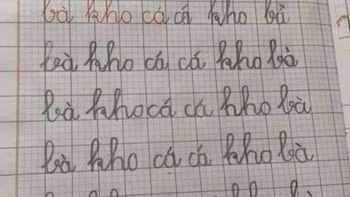 bà kho cá cá kho bà
bà kho cá cá kho bà
bà kho cá cá kho bà
bà kho cá cá kho bà